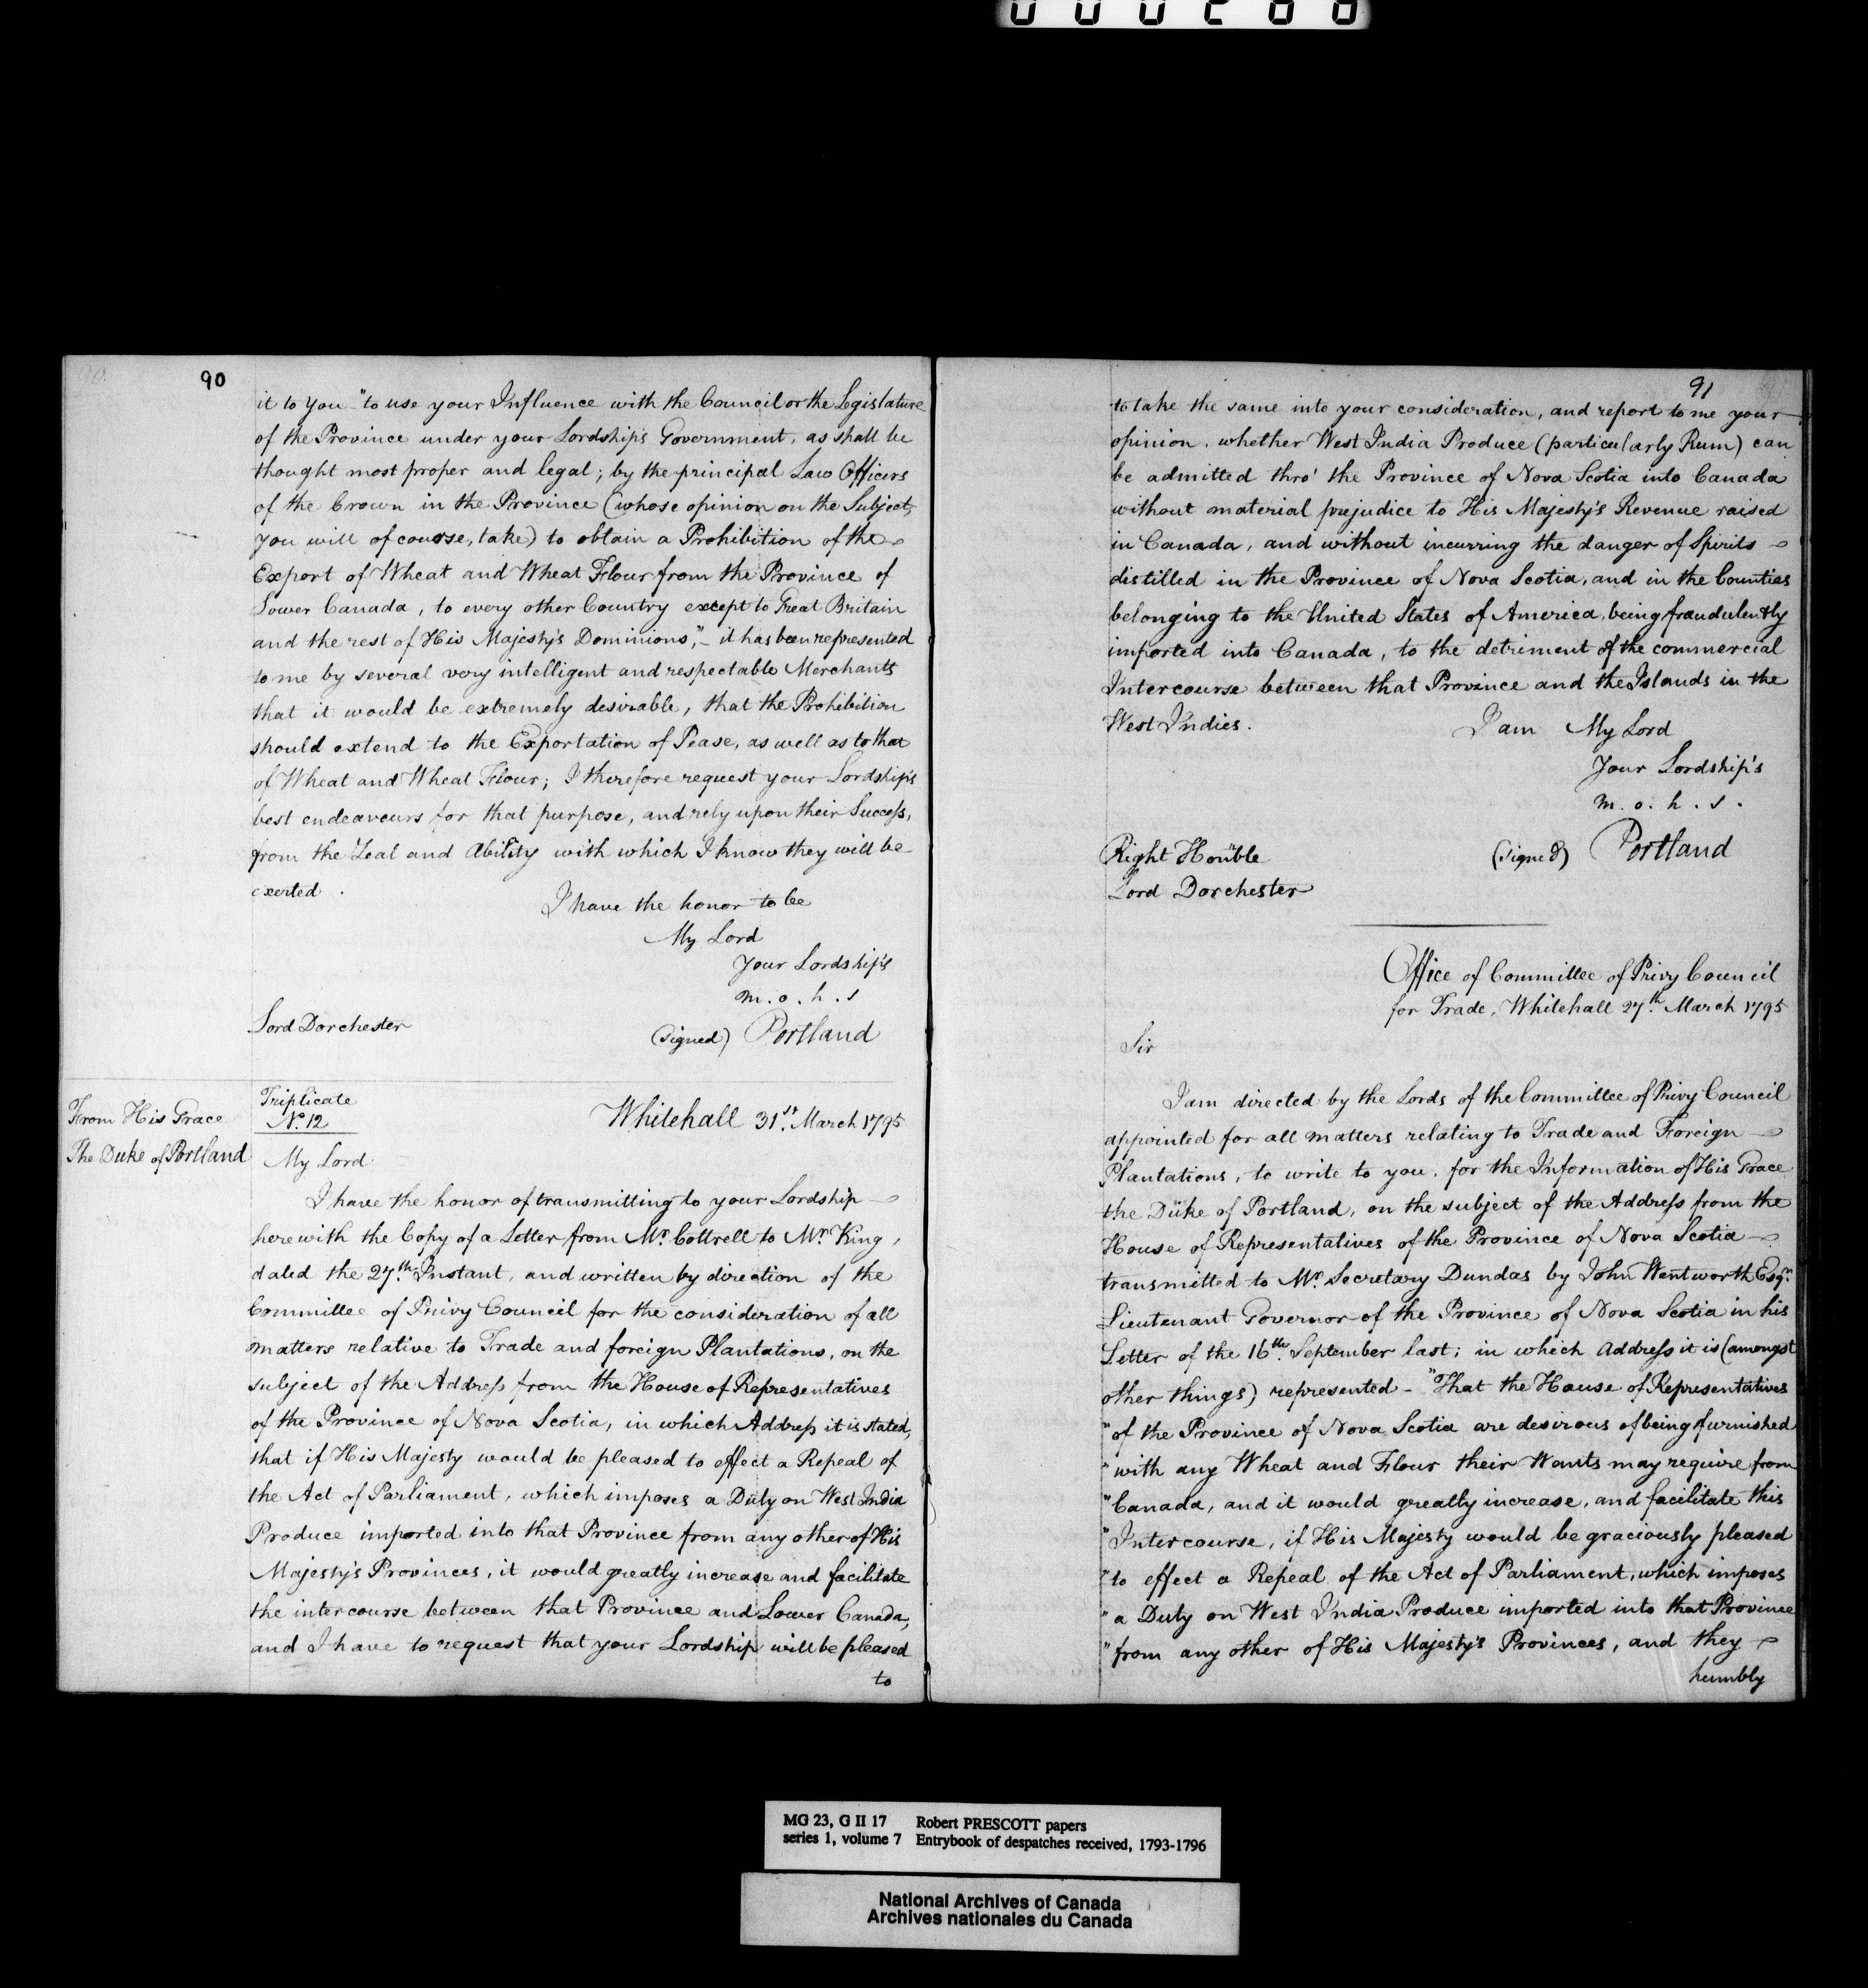 90
it to you "to use your Influence with the Council or the Legislature
of the Province under your Lordship's Government, as shall be
thought most proper and legal; by the principal Law Officers
of the Crown in the Province (whose opinion on the Subject,
you will of course, take) to obtain a Prohibition of the
Export of Wheat and Wheat Flour from the Province of
Lower Canada, to every other Country except to Great Britain
and the rest of His Majesty's Dominions", - it has been represented
to me by several very intelligent and respectable Merchants
that it would be extremely desirable, that the Prohibition
should extend to the Exportation of Pease, as well as to that
of Wheat and Wheat Flour; I therefore request your Lordship's
best endeavours for that purpose, and rely upon their Success,
from the Zeal and Ability with which I know they will be
exerted.
I have the honor to be
My Lord
Your Lordship's
m. o. h. s
Lord Dorchester
(signed) Portland
From His Grace
The Duke of Portland
Triplicate
No. 12
Whitehall 31st. March 1795
My Lord
I have the honor of transmitting to your Lordship
herewith the Copy of a Letter from Mr. Cottrell to Mr. King,
dated the 27th. Instant, and written by direction of the
Committee of Privy Council for the consideration of all
matters relative to Trade and foreign Plantations, on the
subject of the Address from the House of Representatives
of the Province of Nova Scotia, in which Address it is stated,
that if His Majesty would be pleased to effect a Repeal of
the Act of Parliament, which imposes a Duty on West India
Produce imported into that Province from any other of His
Majesty's Provinces, it would greatly increase and facilitate
the intercourse between that Province and Lower Canada,
and I have to request that your Lordship will be pleased
to
91
to take the same into your consideration, and report to me your
opinion, whether West India Produce (particularly Rum) can
be admitted thro' the Province of Nova Scotia into Canada
without material prejudice to His Majesty's Revenue raised
in Canada, and without incurring the danger of Spirits
distilled in the Province of Nova Scotia, and in the Counties
belonging to the United States of America, being fraudulently
imported into Canada, to the detriment of the commercial
Intercourse between that Province and the Islands in the
West Indies.
I am My Lord
Your Lordship's
m. o. h. s.
Right Honble
(signed) Portland
Lord Dorchester
Office of Committee of Privy Council
for Trade, Whitehall 27th. March 1795
Sir
I am directed by the Lords of the Committee of Privy Council
appointed for all matters relating to Trade and Foreign
Plantations, to write to you, for the Information of His Grace
the Duke of Portland, on the subject of the Address from the
House of Representatives of the Province of Nova Scotia
transmitted to Mr. Secretary Dundas by John Wentworth Esqr.
Lieutenant Governor of the Province of Nova Scotia in his
Letter of the 16th. September last; in which Address it is (amongst
other things) represented - "That the House of Representatives
"of the Province of Nova Scotia are desirous of being furnished
"with any Wheat and Flour their Wants may require from
"Canada, and it would greatly increase, and facilitate this
"Intercourse, if His Majesty would be graciously pleased
"to effect a Repeal of the Act of Parliament, which imposes
"a Duty on West India Produce imported into that Province
"from any other of His Majesty's Provinces, and they
humbly
MG 23, G II 17 Robert PRESCOTT papers
series 1, volume 7 Entrybook of despatches received, 1793-1796
National Archives of Canada
Archives nationales du Canada